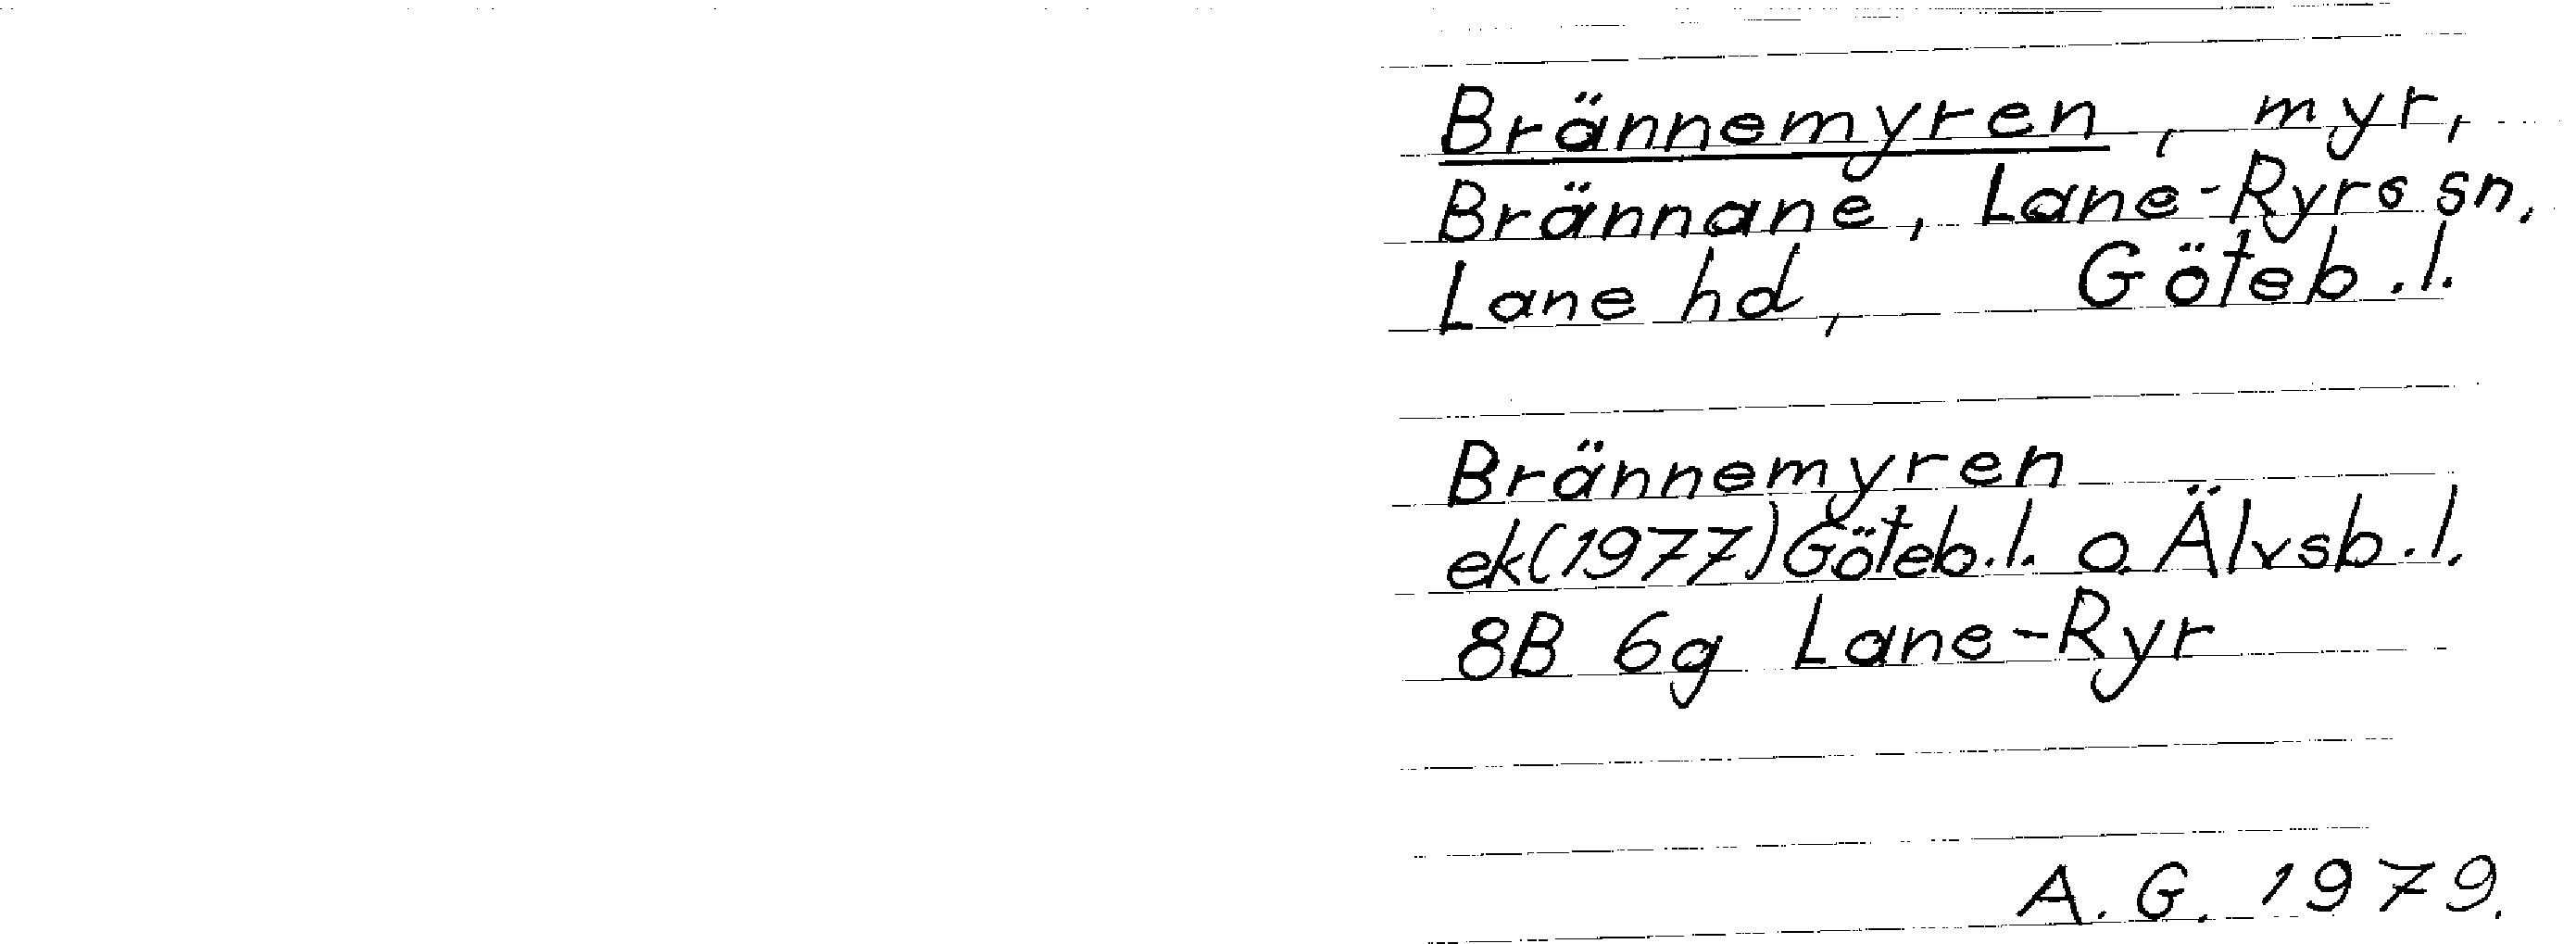 Brännemyren, myr,
Brännane, Lane-Ryrs sn,
Lane hd, Göteb.l.
Brännemyren
ek(1977)Göteb.l. o. Älvsb.l.
8B 6g Lane-Ryr
A.G. 1979.